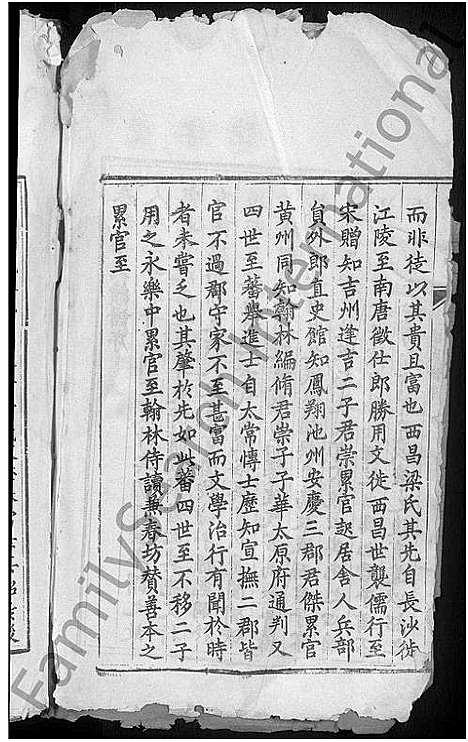 而非徒以其貴且富也西昌梁氏其先自長沙徙
江陵至南唐徵仕郎勝用文徙西昌世襲儒行至
宋贈知吉州逢吉二子君崇累官起居舍人兵部
員外郎直史館知鳳翔池州安慶三郡君傑累官
黄州同知翰林編脩君崇子子華太原府通判又
四世至蕃舉進士自太常博士歷知宣撫二郡皆
官不過郡守家不至甚富而文學治行有聞於時
者未嘗乏也其肇於先如此蕃四世至不移二子
用之永樂中累官至翰林侍讀兼春坊贊善本之
累官至
FamilySearch International